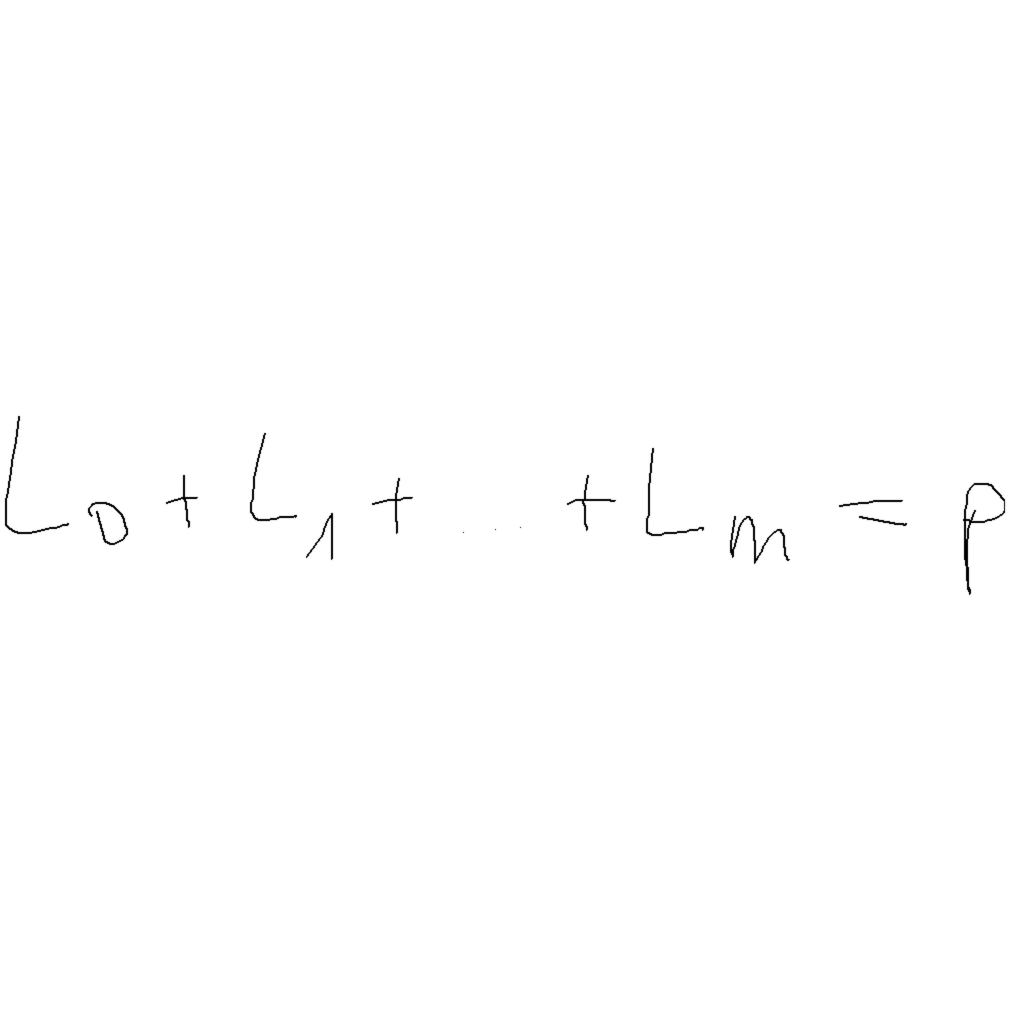 L₀ + L₁ + ... + Lₘ = p